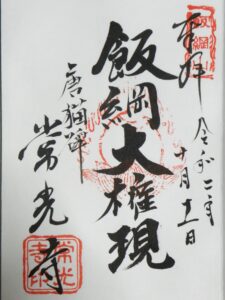 奉拝
令和二年
十月十一日
飯綱大権現
常光寺